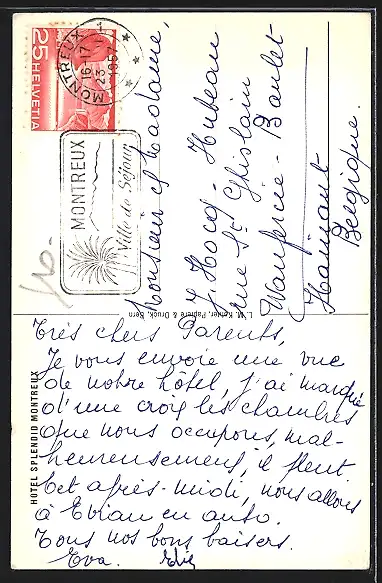 25
HELVETIA
MONTREUX 1
16-17
23
1957
MONTREUX
Ville de Séjour
Monsieur et Madame,
J. Hocq - Hubeau
rue St Ghislain
Wanfercée - Baulet
Hainaut
Belgique.
Kohler, Papiere & Druck, Bern
HOTEL SPLENDID MONTREUX
Très chers Parents,
Je vous envoie une vue
de notre hôtel, j'ai marqué
d'une croix les chambres
que nous occupons, mal-
heureusement, il pleut.
Cet après-midi, nous allons
à Evian en auto.
Tous nos bons baisers.
Eva.